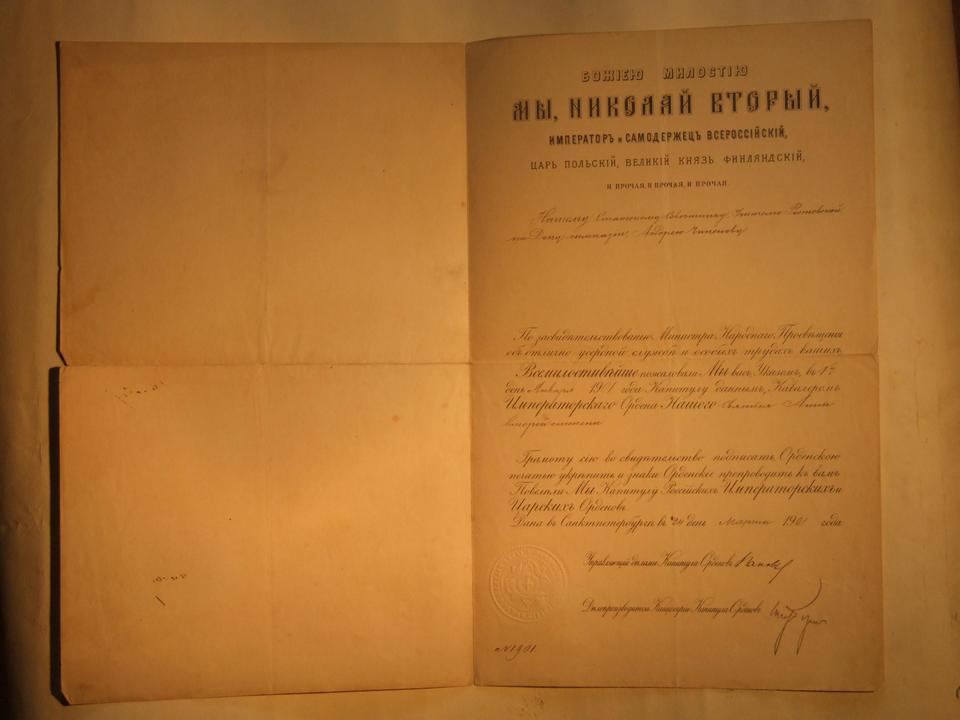 БОЖІЕЮ МИЛОСТІЮ
МЫ, НИКОЛАЙ ВТОРЫЙ,
ИМПЕРАТОРЪ и САМОДЕРЖЕЦЪ ВСЕРОССІЙСКІЙ,
ЦАРЬ ПОЛЬСКІЙ, ВЕЛИКІЙ КНЯЗЬ ФИНЛЯНДСКІЙ,
И ПРОЧАЯ, И ПРОЧАЯ, И ПРОЧАЯ.
Нашему Статскому Совѣтнику, Учителю Ростовской
на Дону гимназіи, Андрею
По засвидѣтельствованію Министра Народнаго Просвѣщенія
объ отлично усердной службѣ и особыхъ трудахъ вашихъ
Всемилостивѣйше пожаловали Мы васъ Указомъ, въ 1й
день Января 1901 года Капитулу даннымъ, Кавалеромъ
Императорскаго Ордена Нашего Святыя Анны
второй степени
Грамоту сію во свидѣтельство подписать, Орденскою
печатью укрѣпить и знаки Орденскіе препроводить къ вамъ
Повелѣли Мы Капитулу Россійскихъ Императорскихъ и
Царскихъ Орденовъ.
Дана въ Санктпетербургѣ въ 24 день Марта 1901 года
Управляющій дѣлами Капитула Орденовъ
Дѣлопроизводитель Канцеляріи Капитула Орденовъ
№1901